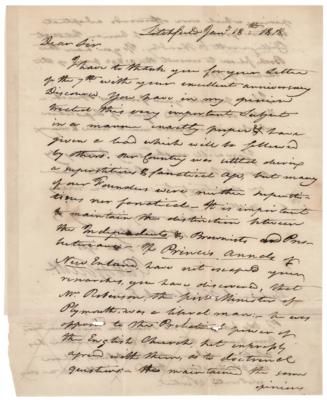 Litchfield Jany 18th 1818.
Dear Sir.
I have to thank you for your Letter
of the 9th with your excellent anniversary
Discourse. You have in my opinion
treated this very important Subject
in a manner exactly proper & have
given a lead which will be followed
by others. Our Country was settled during
a superstitious & fanatical Age, but many
of our Founders were neither supersti-
tious nor fanatical. It is important
to maintain the distinction between
the Independents & Brownists and Pres-
byterians. The Princes Annals of
New England have not escaped your
researches, you have discovered, that
Mr Robinson, the first Minister of
Plymouth was a liberal man. he was
opposed to the power of
the English Church but expressly
agreed with them, as to doctrinal
questions. He maintained the same
opinions